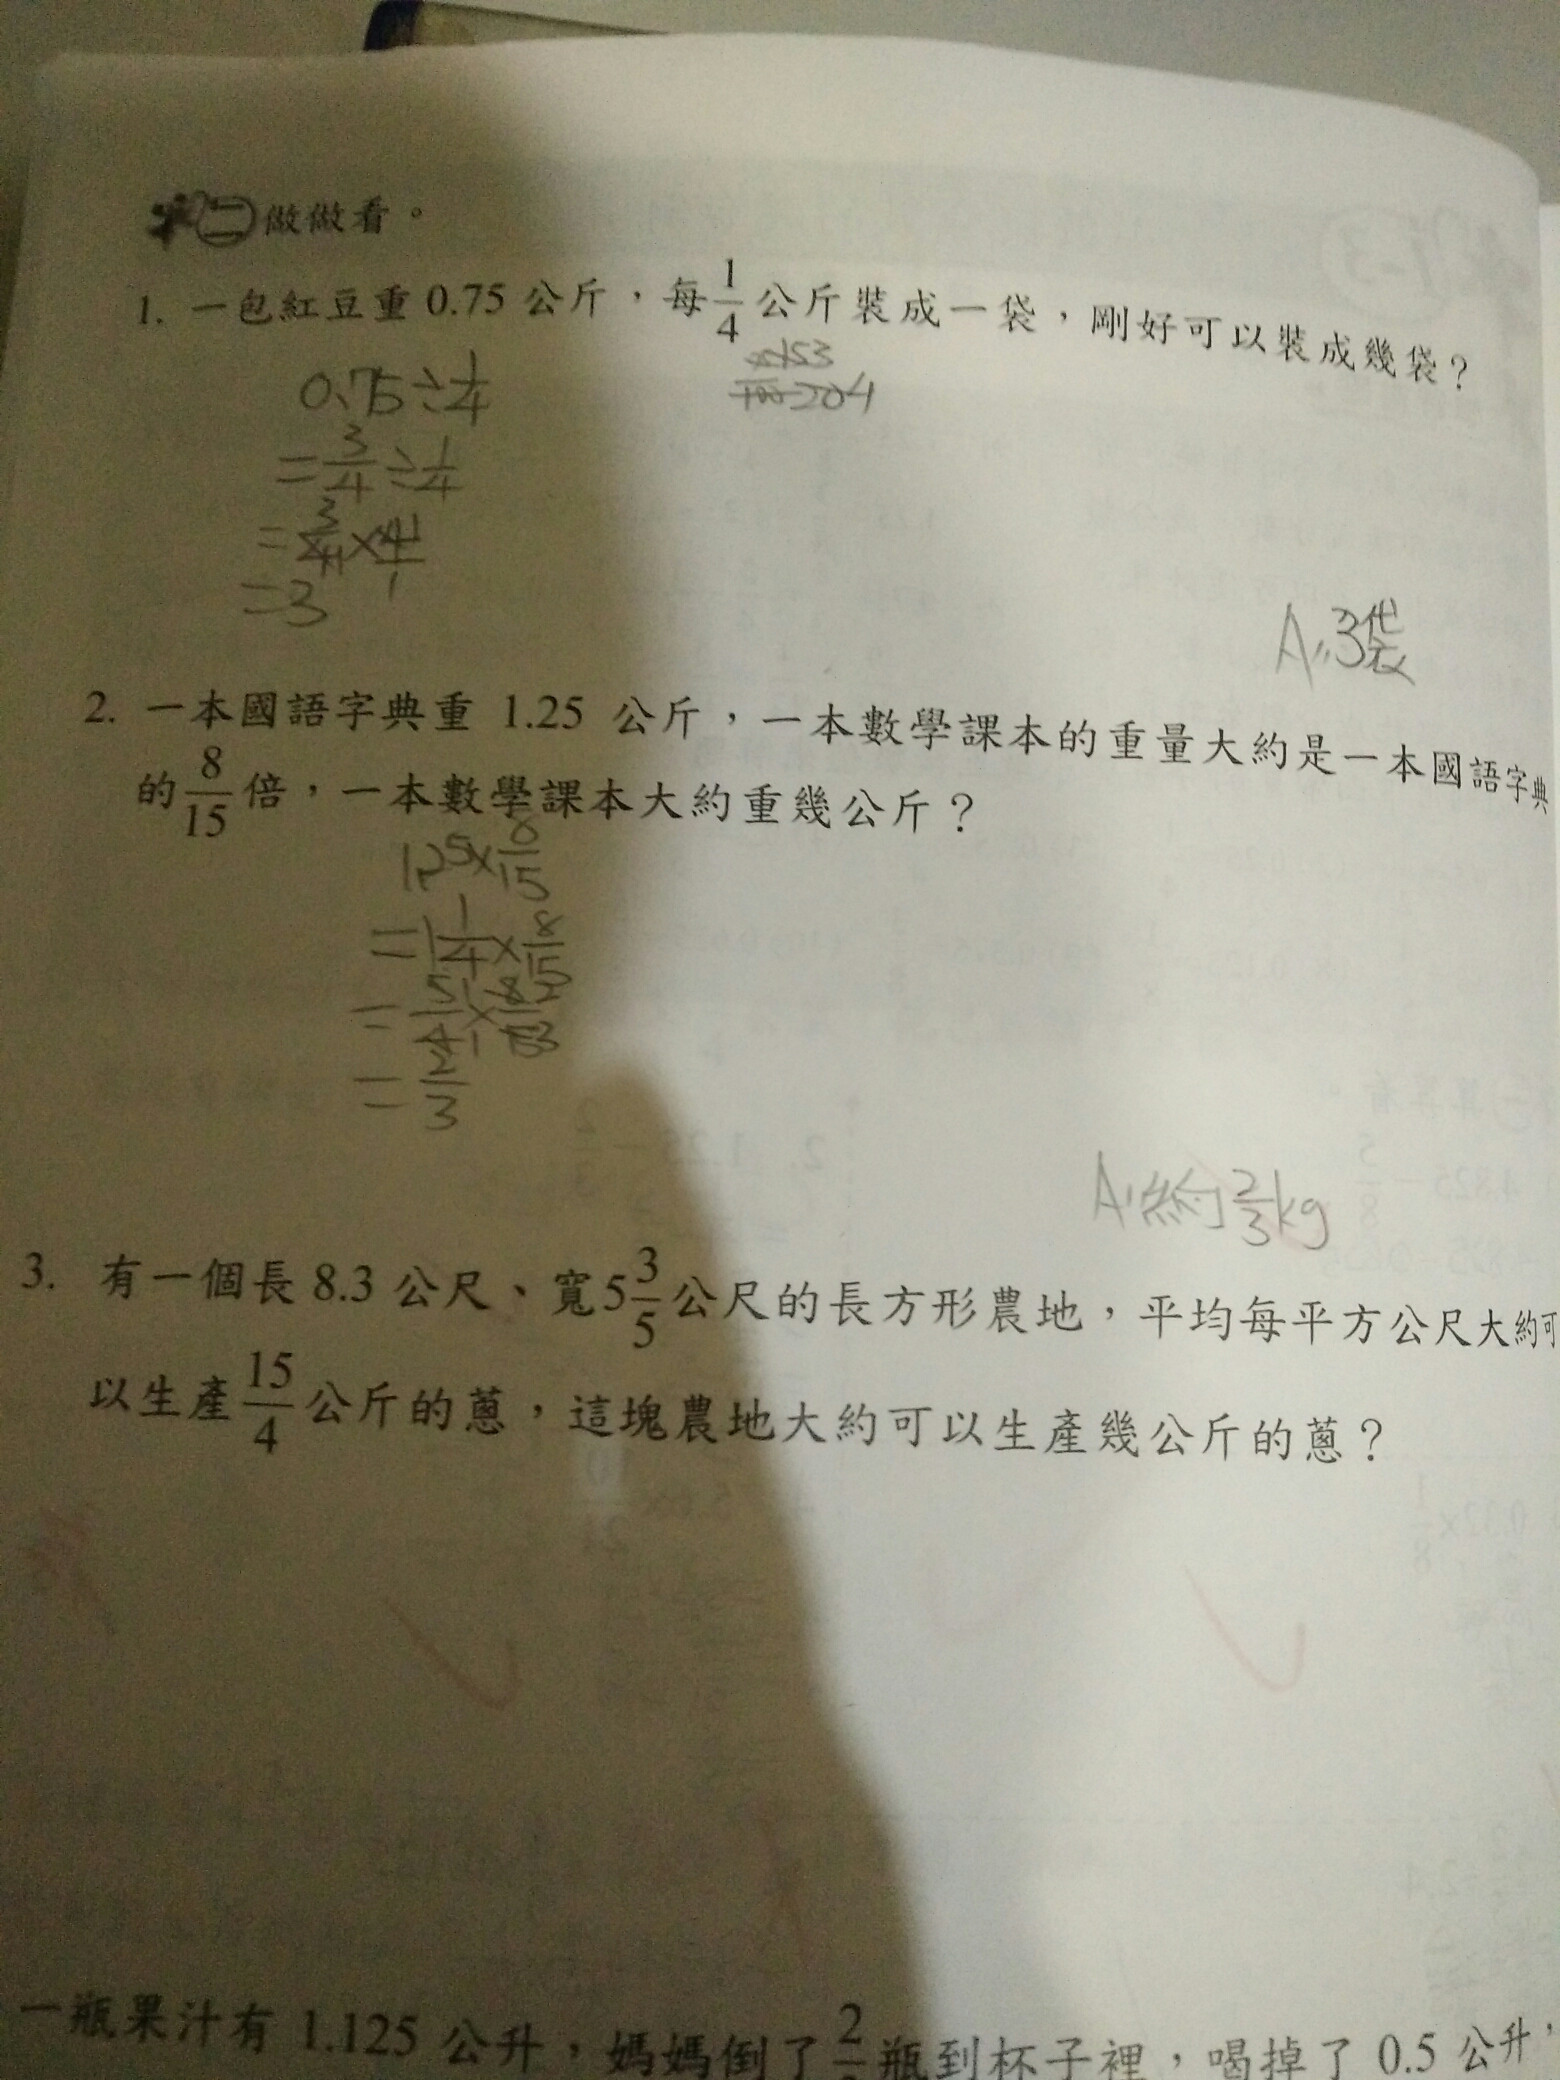 ㊁做做看。
1. 一包紅豆重 0.75 公斤，每1/4公斤裝成一袋，剛好可以裝成幾袋？
0.75÷1/4
=3/4÷1/4
=3/4×4/1
=3
A:3袋
2. 一本國語字典重 1.25 公斤，一本數學課本的重量大約是一本國語字典
的8/15倍，一本數學課本大約重幾公斤？
1.25×8/15
=1 1/4×8/15
=5/4×8/15
=2/3
A:約2/3kg
3. 有一個長 8.3 公尺、寬5 3/5公尺的長方形農地，平均每平方公尺大約可
以生產15/4公斤的蔥，這塊農地大約可以生產幾公斤的蔥？
一瓶果汁有 1.125 公升，媽媽倒了 瓶到杯子裡，喝掉了 0.5 公升，